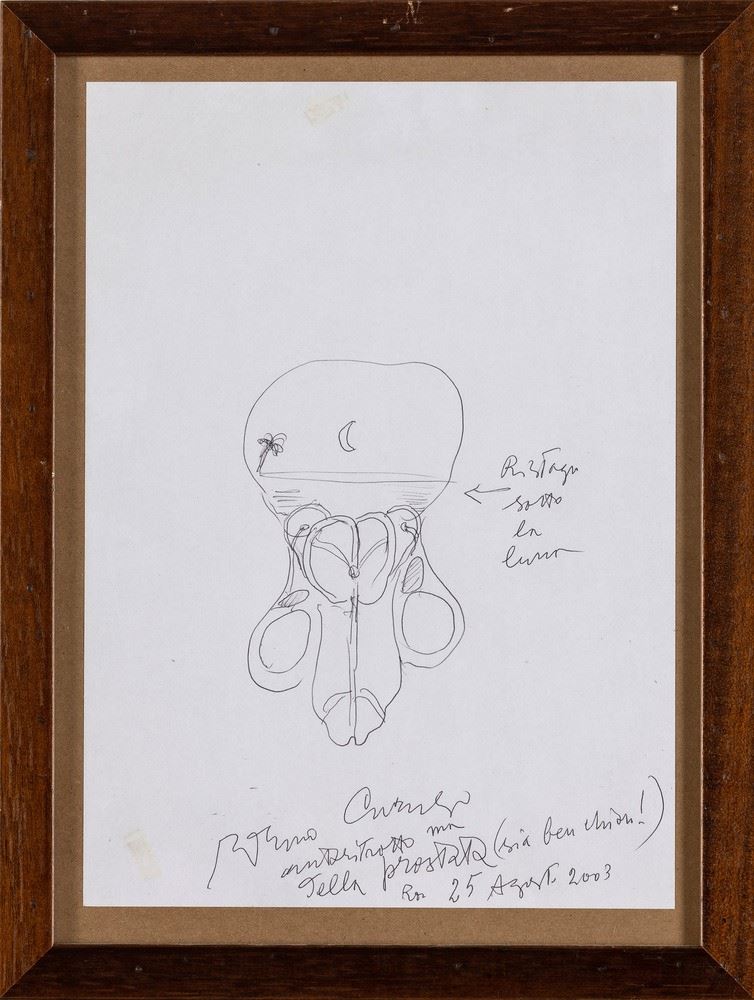 Ristagno
sotto
la
luna
Bruno Caruso
autoritratto ma
della prostata (sia ben chiaro!)
25 Agosto 2003